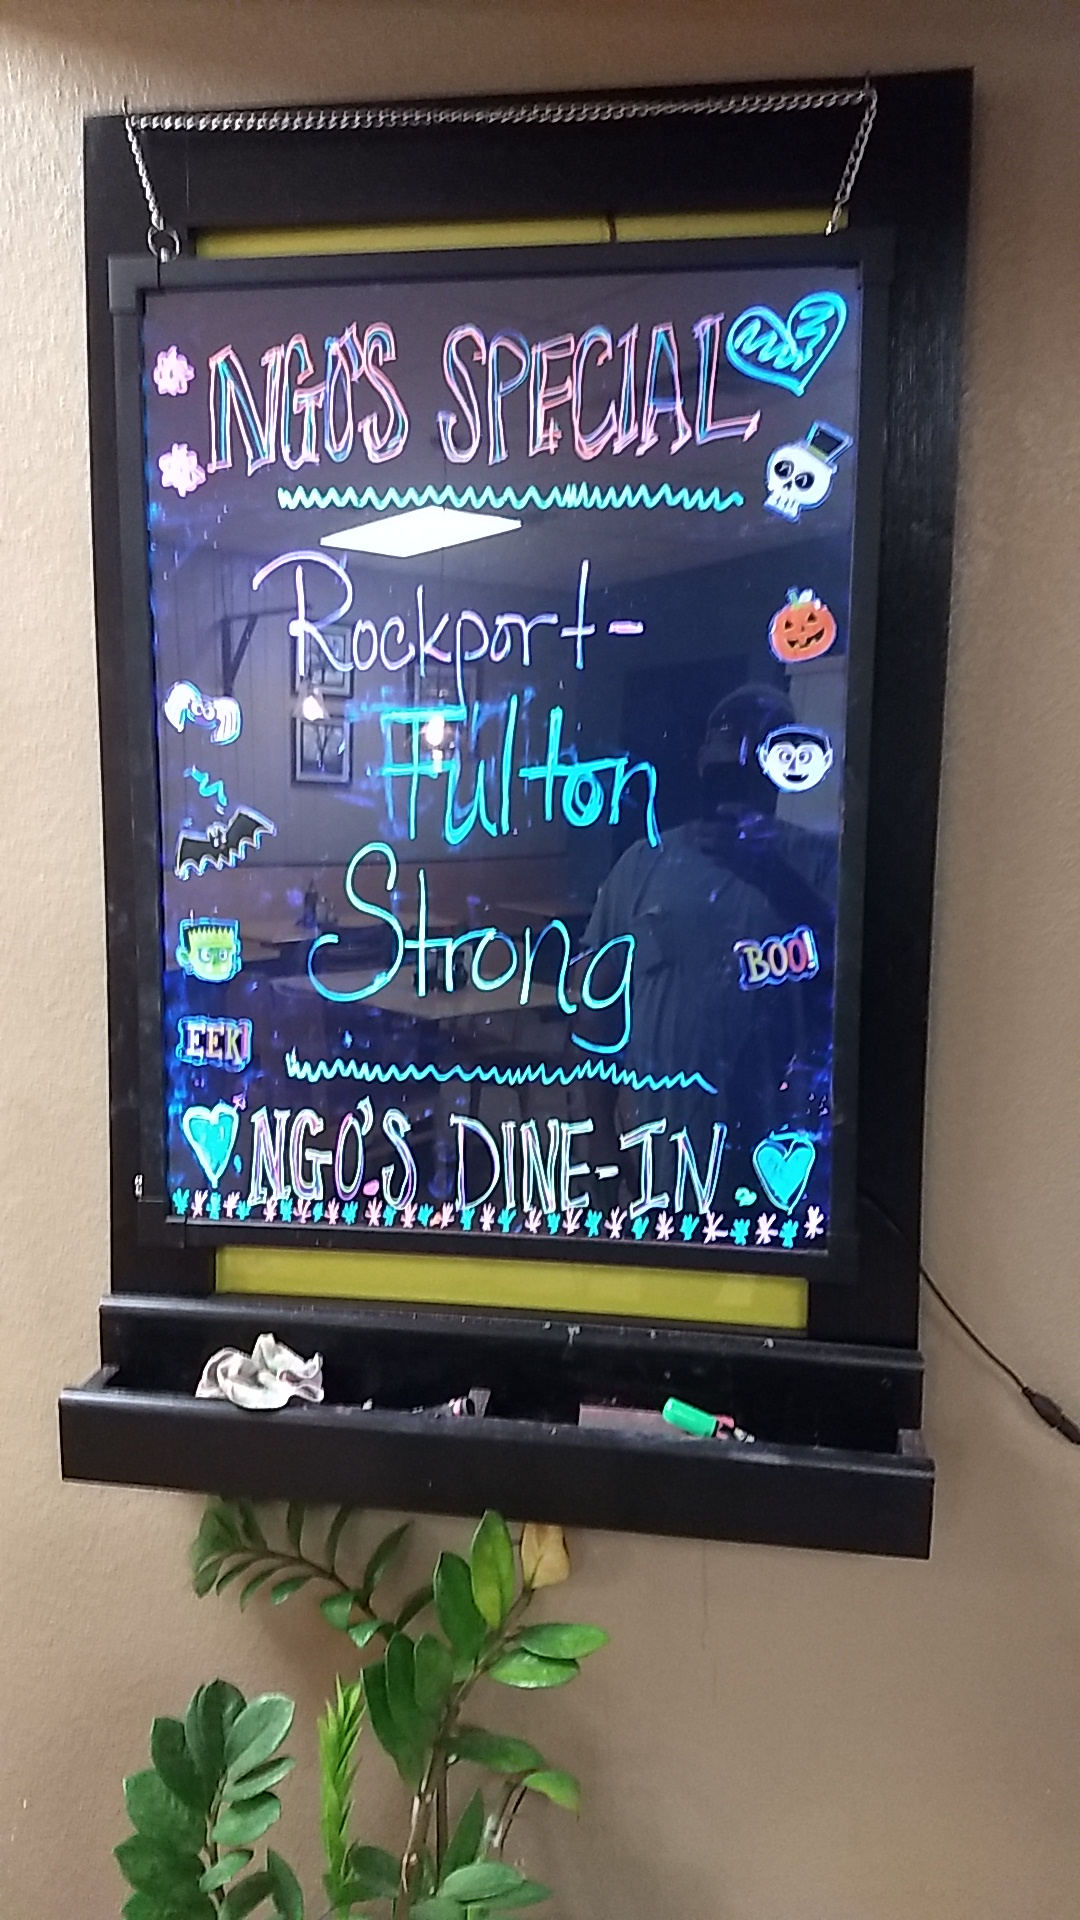 NGO'S SPECIAL
Rockport-
Fulton
Strong
BOO!
EEK!
NGO'S DINE-IN